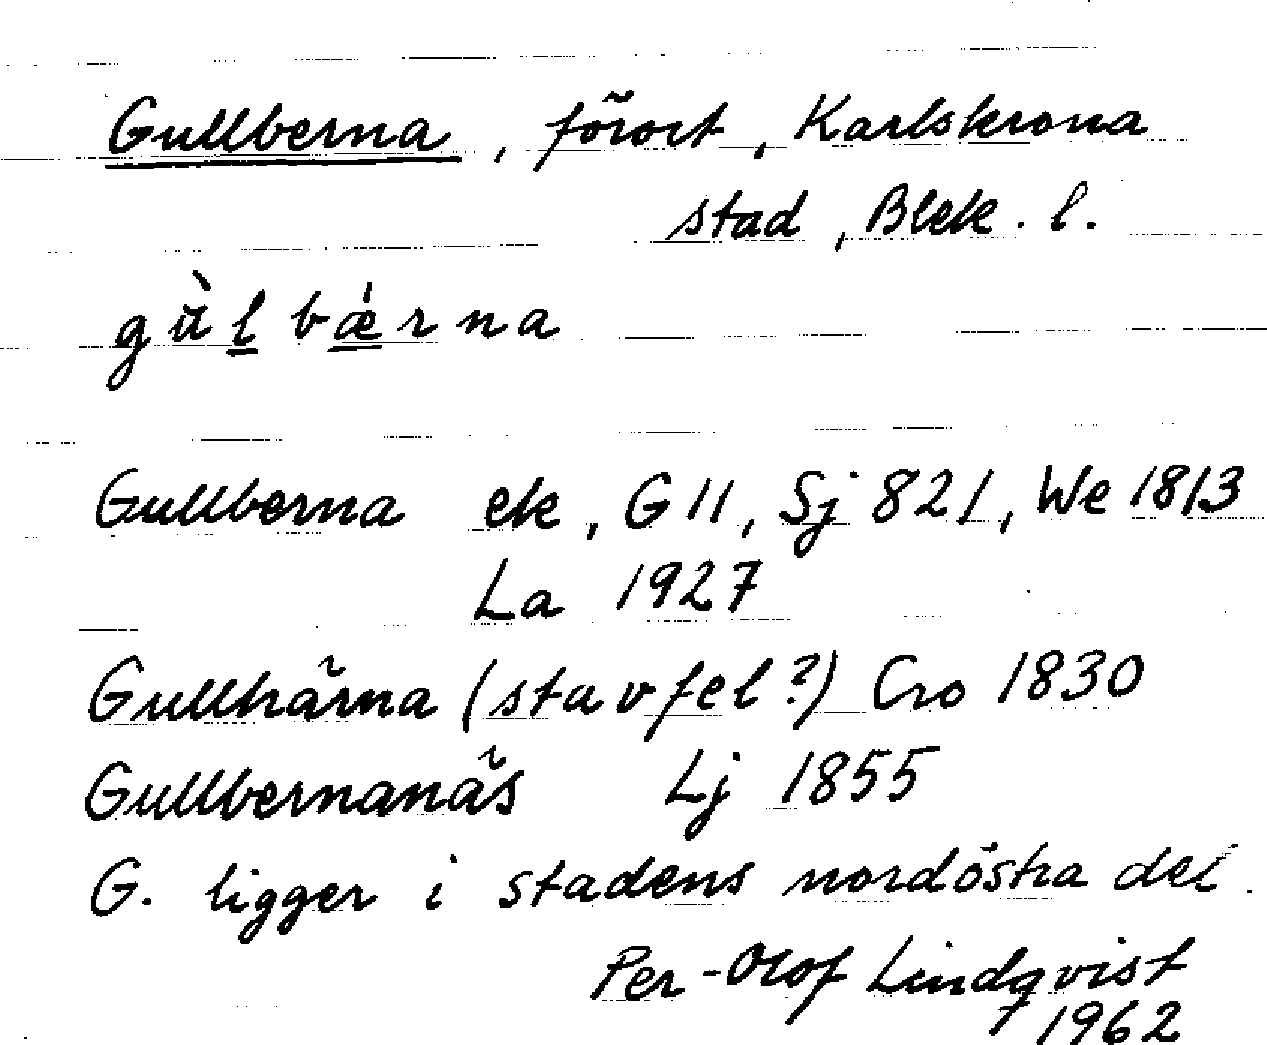 Gullberna, förort, Karlskrona
stad, Blek. l.
gùlbǽrna
Gullberna ek, G 11, Sj 821, We 1813
La 1927
Gullhärna (stavfel?) Cro 1830
Gullbernanäs Lj 1855
G. ligger i stadens nordöstra del.
Per-Olof Lindqvist
1962